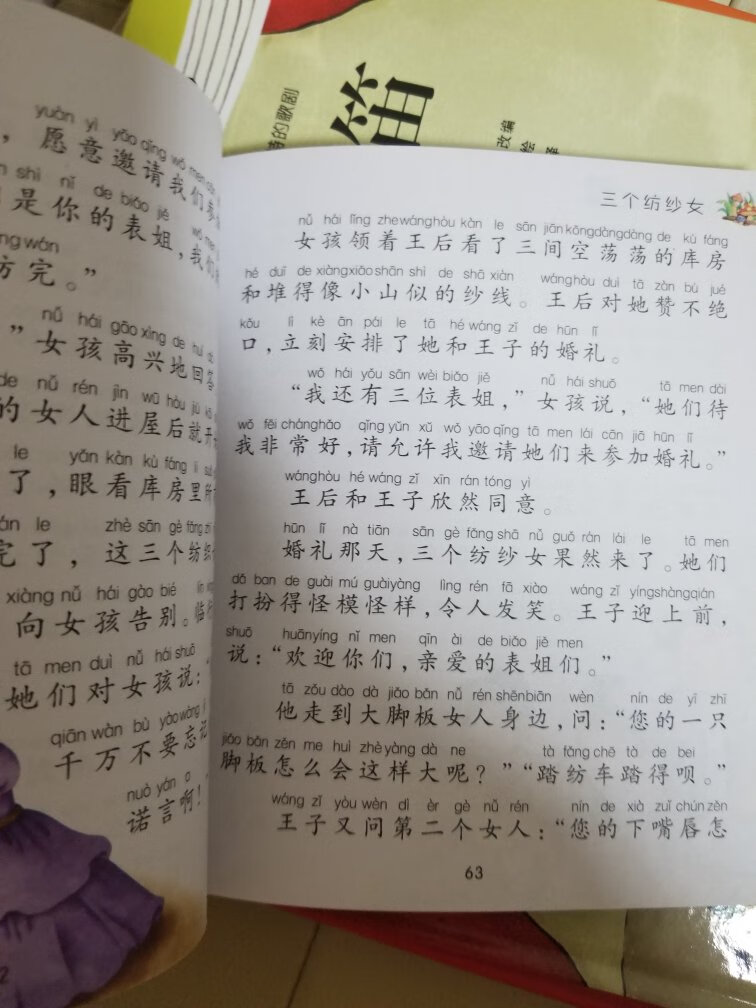 笛
的歌剧
改编
绘
yuàn yì yāo qǐng wǒ men
，愿意邀请我们
shì nǐ de biǎo jiě
是你的表姐，我们
wán
完。”
nǚ hái gāo xìng de huí
”女孩高兴地回答
de nǚ rén jìn wū hòu jiù
的女人进屋后就开
le yǎn kàn kù fáng lǐ
了，眼看库房里所
le zhè sān gè fǎng
完了，这三个纺织
xiàng nǚ hái gào bié
向女孩告别。临
tā men duì nǚ hái shuō
她们对女孩说：
qiān wàn bù yào wàng
千万不要忘记
nuò yán a
诺言啊！
三个纺纱女
nǚ hái lǐng zhe wáng hòu kàn le sān jiān kōng dàng dàng de kù fáng
女孩领着王后看了三间空荡荡的库房
hé duī de xiàng xiǎo shān shì de shā xiàn wáng hòu duì tā zàn bù jué
和堆得像小山似的纱线。王后对她赞不绝
kǒu lì kè ān pái le tā hé wáng zǐ de hūn lǐ
口，立刻安排了她和王子的婚礼。
wǒ hái yǒu sān wèi biǎo jiě nǚ hái shuō tā men dài
“我还有三位表姐，”女孩说，“她们待
wǒ fēi cháng hǎo qǐng yǔn xǔ wǒ yāo qǐng tā men lái cān jiā hūn lǐ
我非常好，请允许我邀请她们来参加婚礼。”
wáng hòu hé wáng zǐ xīn rán tóng yì
王后和王子欣然同意。
hūn lǐ nà tiān sān gè fǎng shā nǚ guǒ rán lái le tā men
婚礼那天，三个纺纱女果然来了。她们
dǎ ban de guài mú guài yàng lìng rén fā xiào wáng zǐ yíng shàng qián
打扮得怪模怪样，令人发笑。王子迎上前，
shuō huān yíng nǐ men qīn ài de biǎo jiě men
说：“欢迎你们，亲爱的表姐们。”
tā zǒu dào dà jiǎo bǎn nǚ rén shēn biān wèn nín de yì zhī
他走到大脚板女人身边，问：“您的一只
jiǎo bǎn zěn me huì zhè yàng dà ne tà fǎng chē tà de bei
脚板怎么会这样大呢？”“踏纺车踏得呗。”
wáng zǐ yòu wèn dì èr gè nǚ rén nín de xià zuǐ chún zěn
王子又问第二个女人：“您的下嘴唇怎
63
2